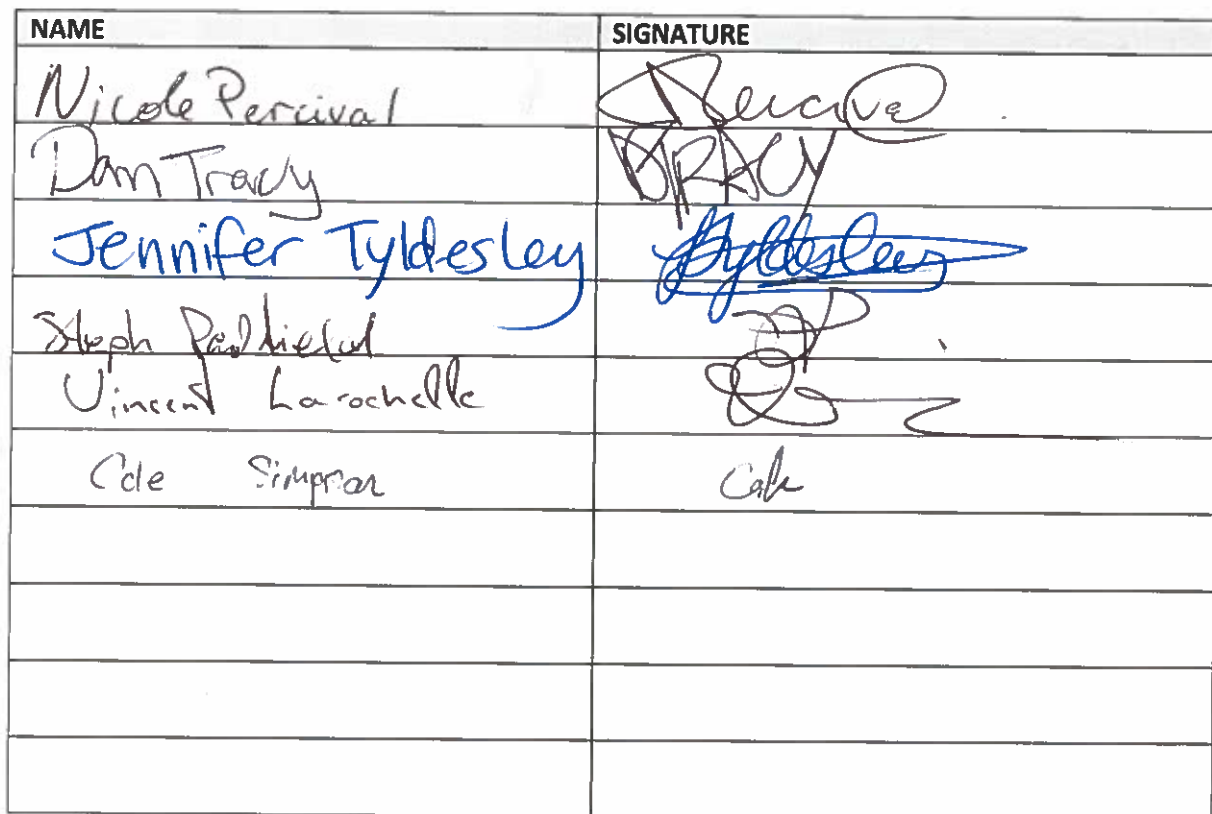 NAME SIGNATURE
Nicole Percival Percival
Dan Tracy DTRACY
Jennifer Tyldesley JTyldesley
Steph
Vincent Larochelle
Cole Simpson Cole